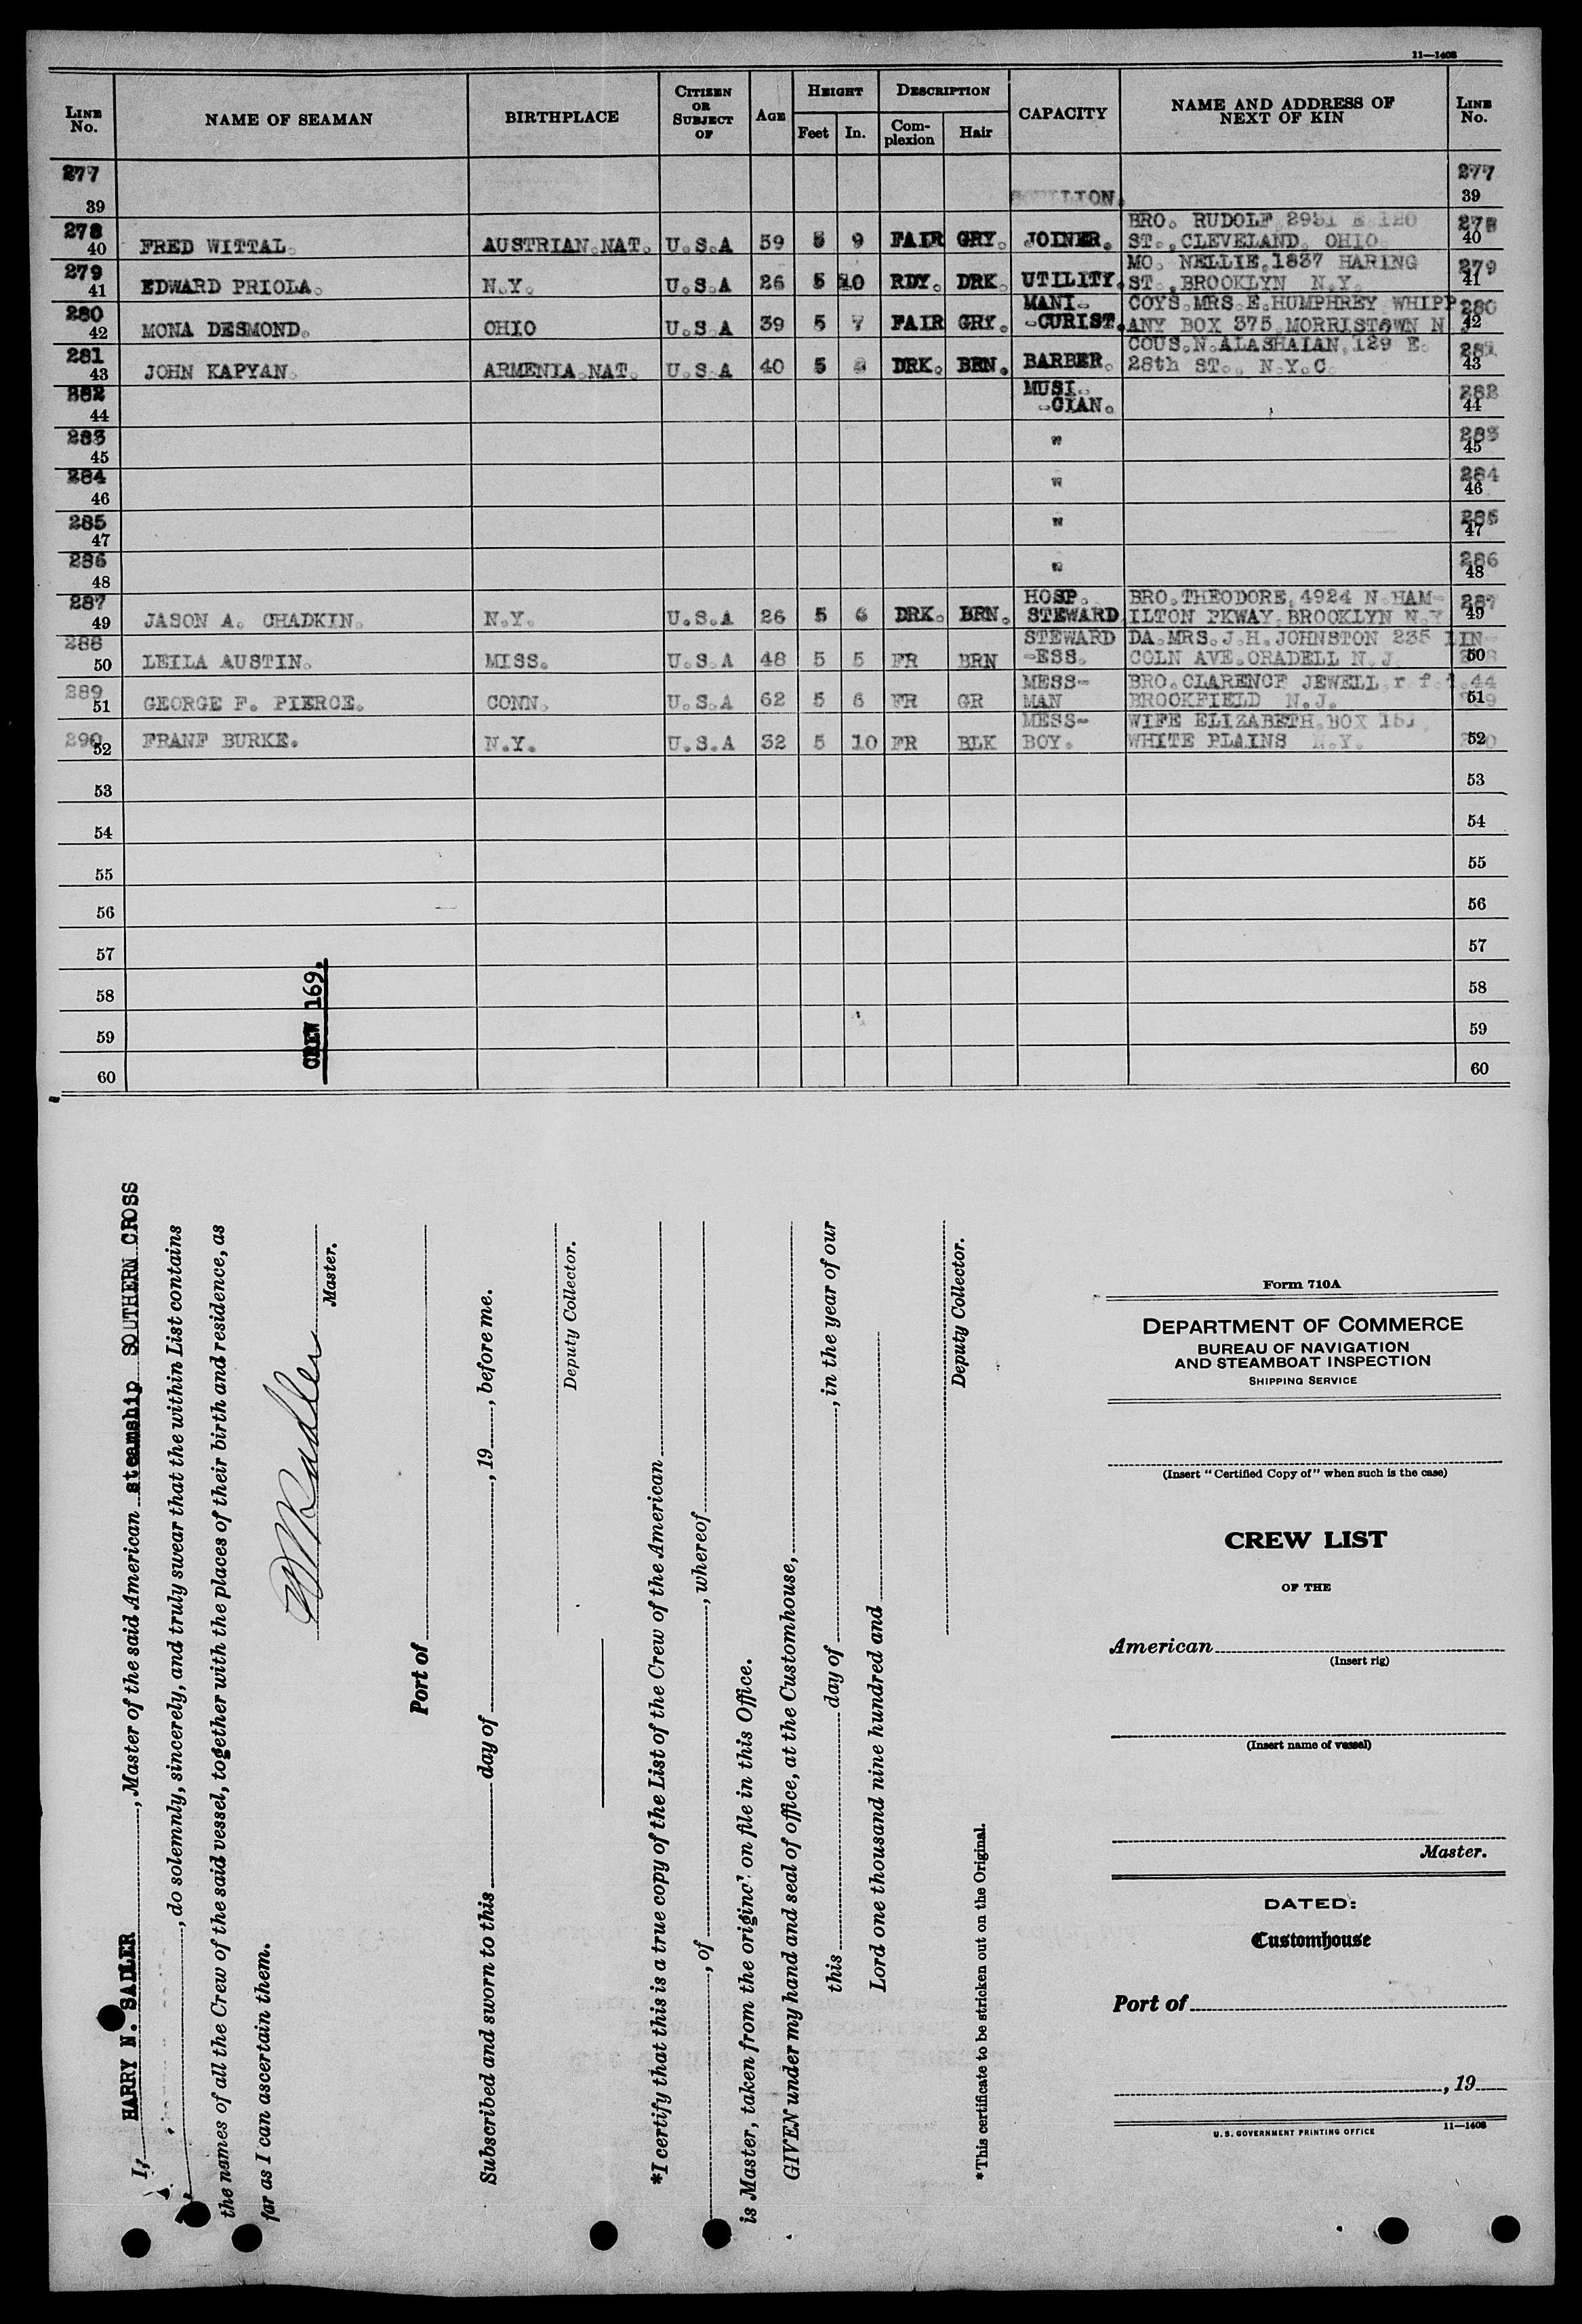 11—1408
LINE No. NAME OF SEAMAN BIRTHPLACE CITIZEN OR SUBJECT OF AGE HEIGHT Feet In. DESCRIPTION Complexion Hair CAPACITY NAME AND ADDRESS OF NEXT OF KIN LINE No.
277 277
39 39
BRO. RUDOLF 2951 E 120
278 278
40 FRED WITTAL. AUSTRIAN.NAT. U.S.A 59 5 9 FAIR GRY. JOINER. ST., CLEVELAND. OHIO. 40
279 MO. NELLIE,1837 HARING 279
41 EDWARD PRIOLA. N.Y. U.S.A 26 5 10 RDY. DRK. UTILITY. ST., BROOKLYN N.Y. 41
280 MANI- COYS.MRS.E.HUMPHREY WHIPP 280
42 MONA DESMOND. OHIO U.S.A 39 5 7 FAIR GRY. -CURIST. ANY BOX 375 MORRISTOWN N J 42
281 COUS.N.ALASHAIAN, 129 E. 281
43 JOHN KAPYAN. ARMENIA.NAT. U.S.A 40 5 DRK. BRN. BARBER. 28th ST., N.Y.C. 43
282 MUSI- 282
44 -CIAN. 44
283 " 283
45 45
284 " 284
46 46
285 " 285
47 47
286 " 286
48 48
287 HOSP. BRO.THEODORE,4924 N.HAM- 287
49 JASON A. CHADKIN. N.Y. U.S.A 26 5 6 DRK. BRN. STEWARD ILTON PKWAY.BROOKLYN N.Y 49
288 STEWARD DA.MRS.J.H.JOHNSTON 235 LIN-
50 LEILA AUSTIN. MISS. U.S.A 48 5 5 FR BRN -ESS. COLN AVE.ORADELL N.J. 50
289 MESS- BRO.CLARENCE JEWELL r f 44
51 GEORGE F. PIERCE. CONN. U.S.A 62 5 6 FR GR MAN BROOKFIELD N.J. 51
290 MESS- WIFE ELIZABETH.BOX
52 FRANF BURKE. N.Y. U.S.A 32 5 10 FR BLK BOY. WHITE PLAINS N.Y. 52
53 53
54 54
55 55
56 56
57 57
58 58
59 59
60 60
CREW 169.
I, HARRY N. SADLER, Master of the said American steamship SOUTHERN CROSS
, do solemnly, sincerely, and truly swear that the within List contains
the names of all the Crew of the said vessel, together with the places of their birth and residence, as
far as I can ascertain them.
Sadler
Master.
Port of
Subscribed and sworn to this day of , 19 , before me.
Deputy Collector.
*I certify that this is a true copy of the List of the Crew of the American
, of , whereof
is Master, taken from the original on file in this Office.
GIVEN under my hand and seal of office, at the Customhouse,
this day of , in the year of our
Lord one thousand nine hundred and
Deputy Collector.
*This certificate to be stricken out on the Original.
Form 710A
DEPARTMENT OF COMMERCE
BUREAU OF NAVIGATION
AND STEAMBOAT INSPECTION
SHIPPING SERVICE
(Insert "Certified Copy of" when such is the case)
CREW LIST
OF THE
American
(Insert rig)
(Insert name of vessel)
Master.
DATED:
Customhouse
Port of
, 19
U.S. GOVERNMENT PRINTING OFFICE 11—1408